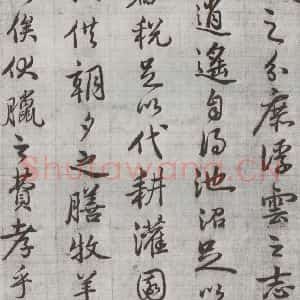 之分庶浮雲之志
逍遙自得池沼足以
稅足以代耕灌園
供朝夕之膳牧羊
俟伏臘之費孝乎
Shufawang.CN